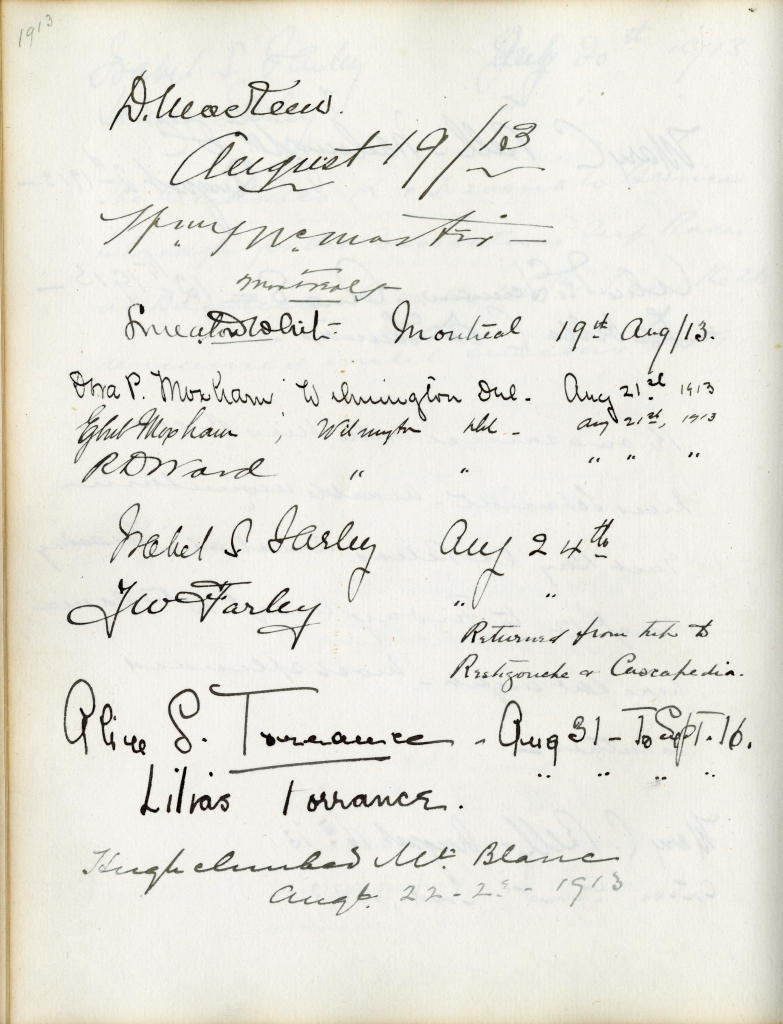 1913
D.
August 19/13
McMaster
Montreal
Smeaton White Montreal 19th Aug/13.
Dora P. Moxham Wilmington Del. Aug 21st 1913
Egbert Moxham, Wilmington Del - Aug 21st, 1913
R D Ward " " " " "
Isabel S Farley Aug 24th
J W Farley " "
Returned from trip to
Restigouche & Cascapedia.
Alice S. Torrance - Aug 31 - To Sept. 16.
Lilias Torrance. " " " "
Hugh climbed Mt Blanc
Augt. 22-23 - 1913